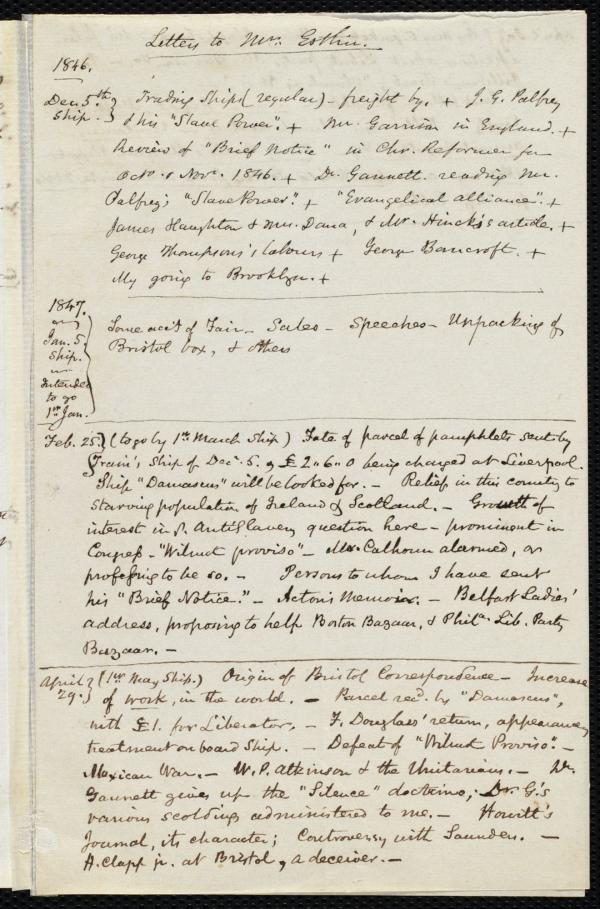 Letters to Mr. Estlin.
1846.
Dec. 5.th Ship. } Trading Ships (regular) - freight by. + J. G. Palfrey
& his "Slave Power". + Mr. Garrison in England. +
Review of "Brief Notice" in Chr. Reformer for
Octo. & Novr. 1846. + Dr. Gannett reading Mr.
Palfrey's "Slave Power". + "Evangelical alliance". +
James Haughton & Mrs. Dana, & Mr. Hincks's article. +
George Thompson's labours + George Bancroft. +
My going to Brooklyn. +
1847.
Jan. 5. Ship. intended to go 1st Jan. } Some acct of Fair - Sales - Speeches - Unpacking of
Bristol box, & others
Feb. 25. } (to go by 1st March Ship) Fate of parcel of pamphlets sent by
Train's Ship of Dec. 5. £2 " 6 " 0 being charged at Liverpool.
Ship "Damascus" will be looked for. - Relief in this country to
starving population of Ireland & Scotland. - Growth of
interest in ye. AntiSlavery question here - prominent in
Congress - "Wilmot proviso" - Mr. Calhoun alarmed, or
professing to be so. - Persons to whom I have sent
his "Brief Notice." - Acton's memoir. - Belfast Ladies'
address, proposing to help Boston Bazaar, & Phila. Lib. Party
Bazaar. -
April 29. } (1st May Ship.) Origin of Bristol Correspondence - Increase
of work, in the world. - Parcel recd. by "Damascus",
with £1. for Liberator. - F. Douglass' return, appearance,
treatment on board Ship. - Defeat of "Wilmot Proviso". -
Mexican War. - W. P. Atkinson & the Unitarians. - Dr.
Gannett gives up the "Silence" doctrine; Dr. G.'s
various scoldings administered to me. - Howitt's
Journal, its character; Controversy with Saunders. -
H. Clapp jr. at Bristol, a deceiver. -